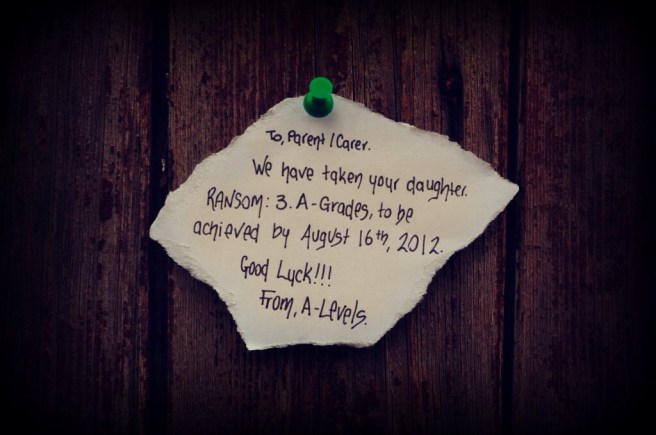 To, Parent / Carer.
We have taken your daughter.
RANSOM: 3. A-Grades, to be
achieved by August 16th, 2012.
Good Luck!!!
From, A-Levels.